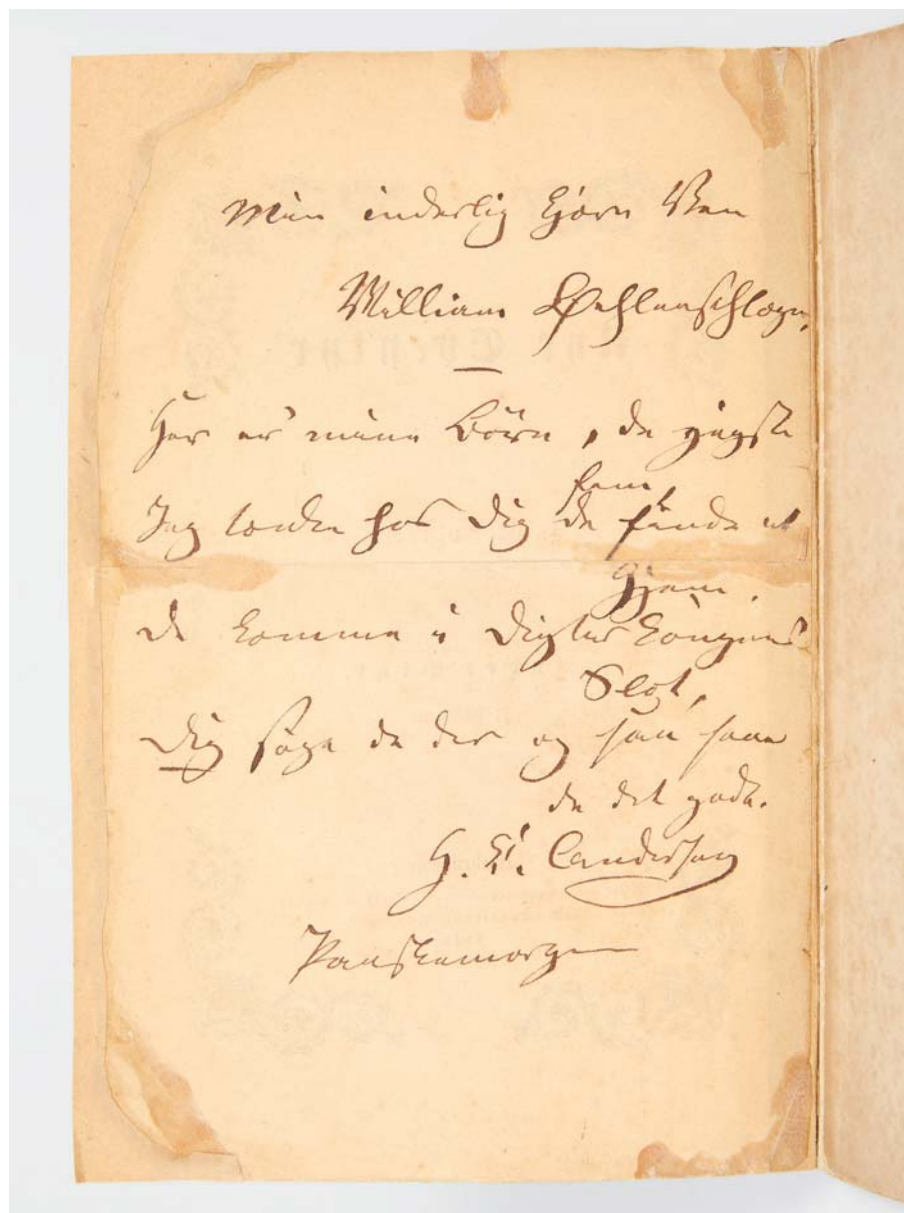 Min inderlig kjære Ven
William Oehlenschlæger,
Her er mine Børn, de yngste fem,
Jeg tænker hos Dig de finde et Hjem.
de komme i Digterkongens Slot,
Dig søge de der og saa faae
de det godt.
H. C. Andersen
Paaskemorgen